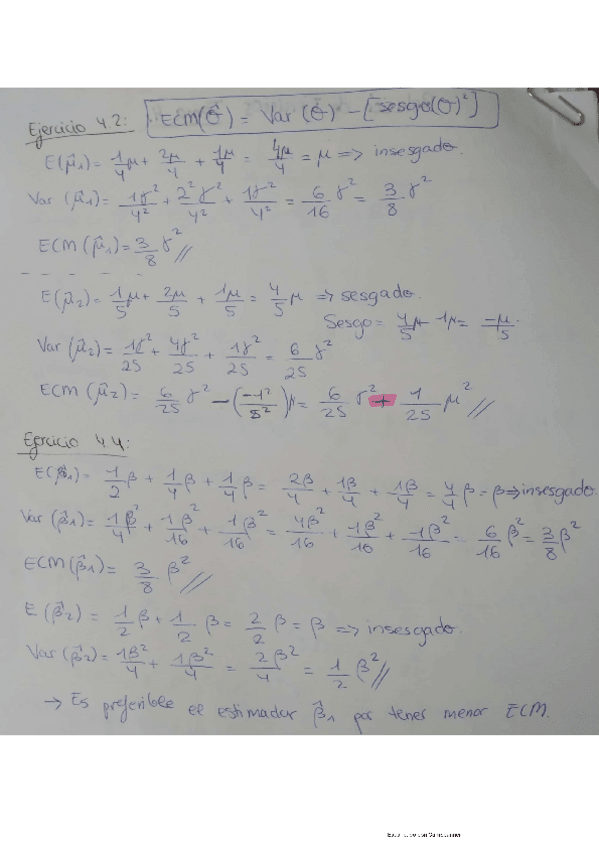 Ejercicio 4.2: ECM(θ̂) = Var(θ̂) - [sesgo(θ)²]
E(μ̂1) = 1/4 μ + 2μ/4 + 1μ/4 = 4μ/4 = μ => insesgado.
Var(μ̂1) = 1γ²/4² + 2²γ²/4² + 1γ²/4² = 6/16 γ² = 3/8 γ²
ECM(μ̂1) = 3/8 γ² //
E(μ̂2) = 1/5 μ + 2μ/5 + 1μ/5 = 4/5 μ => sesgado.
Sesgo = 4/5 μ - 1μ = -μ/5.
Var(μ̂2) = 1γ²/25 + 4γ²/25 + 1γ²/25 = 6/25 γ²
ECM(μ̂2) = 6/25 γ² - (-1²/5²)μ = 6/25 γ² + 1/25 μ² //
Ejercicio 4.4:
E(β̂1) = 1/2 β + 1/4 β + 1/4 β = 2β/4 + 1β/4 + 1β/4 = 4/4 β = β => insesgado.
Var(β̂1) = 1β²/4 + 1β²/16 + 1β²/16 = 4β²/16 + 1β²/16 + 1β²/16 = 6/16 β² = 3/8 β²
ECM(β̂1) = 3/8 β² //
E(β̂2) = 1/2 β + 1/2 β = 2/2 β = β => insesgado.
Var(β̂2) = 1β²/4 + 1β²/4 = 2β²/4 = 1/2 β² //
→ Es preferible el estimador β̂1 por tener menor ECM.